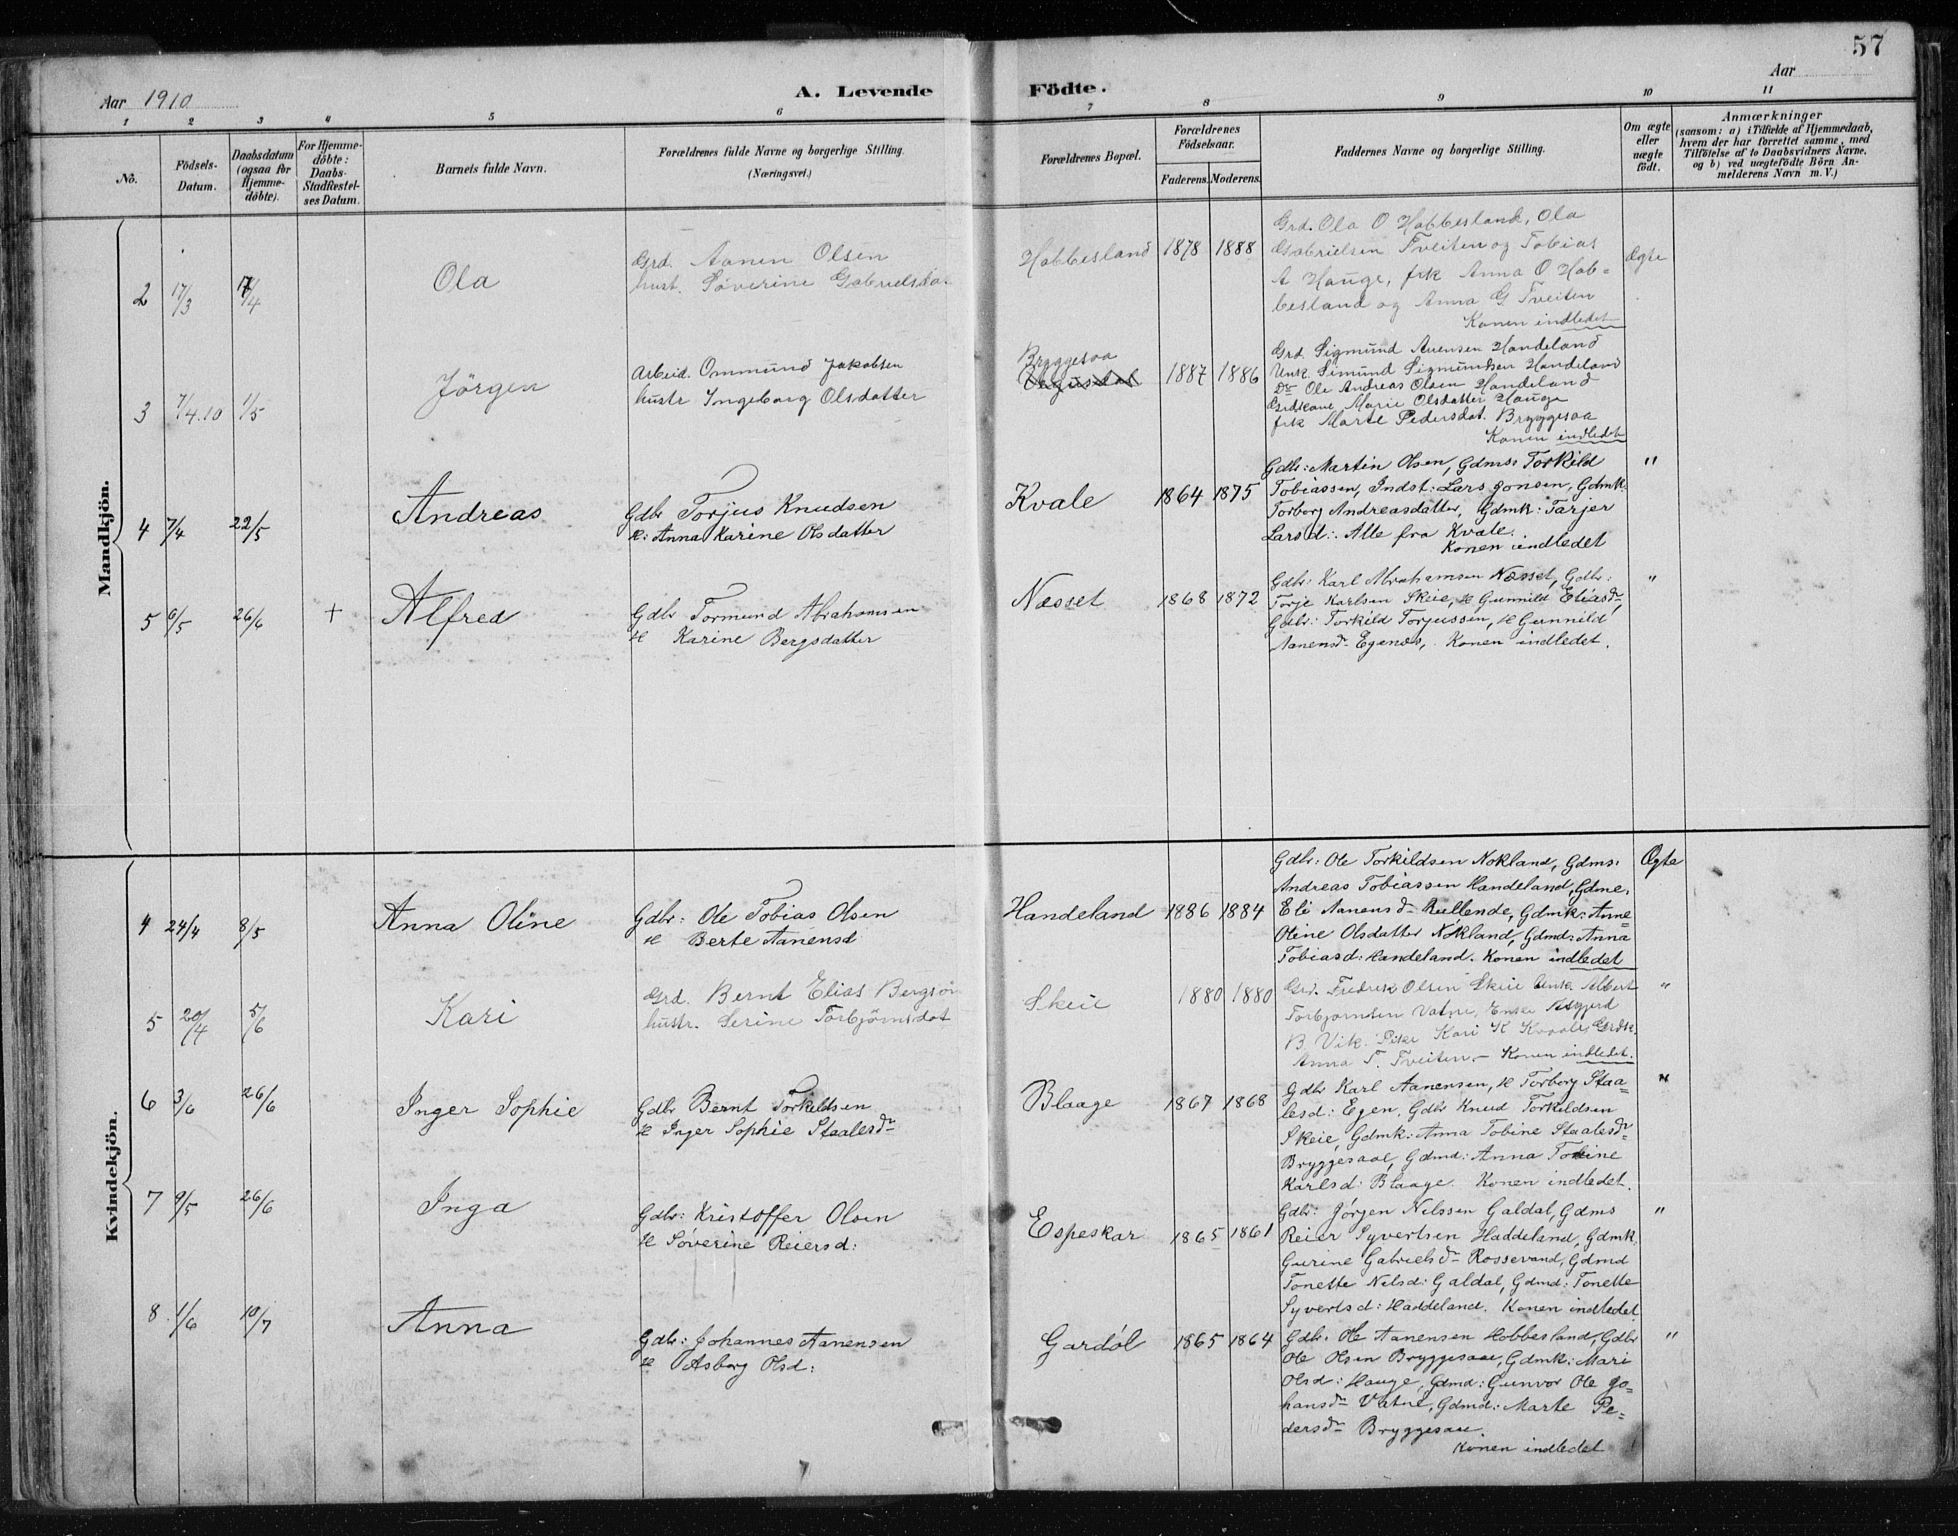 57
Aar 1910
A. Levende
Födte.
Aar
1 2 3 4 5 6 7 8 9 10 11
No.
Födsels-
Datum.
Daabsdatum
(ogsaa for
Hjemme-
döbte).
For Hjemme-
döbte:
Daabs-
Stadfæstel-
ses Datum.
Barnets fulde Navn.
Forældrenes fulde Navne og borgerlige Stilling.
(Næringsvei.)
Forældrenes Bopæl.
Forældrenes
Födselsaar.
Faderens. Moderens.
Faddernes Navne og borgerlige Stilling.
Om ægte
eller
uægte
födt.
Anmærkninger
(saasom: a) i Tilfælde af Hjemmedaab,
hvem der har forrettet samme, med
Tilföielse af to Daabsvidners Navne.
og b) ved uægtefödte Börn An-
melderens Navn m. V.)
Mandkjön.
2 17/3 17/4
Ola
Grd. Aanen Olsen
hust. Söverine Gabrielsda
Hobbesland 1878 1888
Grd. Ola O Hobbesland, Ola
Gabrielsen Tveiten og Tobias
A Hauge, frk Anna O Hob=
besland og Anna G Tveiten
Konen indledet
Ægte
3 7/4.10 1/5
Jörgen
Arbeid. Ommund Jakobsen
hustr Ingeborg Olsdatter
Bryggesaa
1887 1886
Grd. Sigmund Auensen Handeland
Unk. Simund Sigmundsen Handeland
Do Ole Andreas Olsen Handeland
Grdkone Marie Olsdatter Hauge
frk Marte Pedersdat. Bryggesaa
Konen indledet
4 7/4 22/5
Andreas
Gdbr Torjus Knudsen
K: Anna Karine Olsdatter
Kvale 1864 1875
Gdbr: Martin Olsen, Gdms: Torkild
Tobiassen, Indst: Lars Jonsen, Gdmk:
Torborg Andreasdatter, Gdmk: Tarjer
Larsd:. Alle fra Kvale.
Konen indledet
"
5 6/5 26/6 +
Alfred
Gdbr Tormund Abrahamsen
K Karine Bergsdatter
Næsset 1868 1872
Gdbr: Karl Abrahamsen Næsset, Gdbr:
Torje Karlsen Skeie, K Gunnild Eliasdr,
Gdbr: Torkild Torjussen, K Gunnild
Aanensd- Egenæs, Konen indledet.
"
Kvindekjön.
4 24/4 8/5
Anna Oline
Gdbr: Ole Tobias Olsen
K Berte Aanensd
Handeland 1886 1884
Gdbr: Ole Torkildsen Nokland, Gdms:
Andreas Tobiassen Handeland, Gdme:
Eli Aanensd- Gdmk: Anne
Oline Olsdatter Nokland, Gdmd: Anna
Tobiasd: Handeland. Konen indledet
Ægte
5 20/4 5/6
Kari
Grd. Bernt Elias Bergsön
hustr. Serine Torbjörnsdat
Skeie 1880 1880
Grd. Fredrik Olsen Skeie Unk. Albert
Torbjornsen Vatne, Enke Asgjerd
B. Vik. Pike Kari K Kvaale, Grdk.
Anna T. Tveiten.- Konen indledet.
"
6 3/6 26/6
Inger Sophie
Gdbr Bernt Torkildsen
K Inger Sophie Staalesdr
Blaage 1867 1868
Gdbr Karl Aanensen, K Torborg Staa=
lesd: Egen, Gdbr Knud Torkildsen
Skeie, Gdmk: Anna Tobine Staalesdr
Bryggesaae, Gdmd: Anna Tobine
Karlsd: Blaage. Konen indledet.
"
7 9/5 26/6
Inga
Gdbr: Kristoffer Olsen
K Söverine Reiersd:
Espeskar 1865 1861
Gdbr: Jörgen Nelssen Galdal, Gdms
Reier Syvertsen Haddeland, Gdmk.
Gurine Gabrielsdr Rossevand, Gdmd
Tonette Nelsd: Galdal, Gdmd: Tonette
Syvertsd: Haddeland. Konen indledet
"
8 1/6 10/7
Anna
Gdbr: Johannes Aanensen
K Asborg Olsd:
Gardöl 1865 1864
Gdbr. Ole Aanensen Hobbesland, Gdbr
Ole Olsen Bryggesaae, Gdmk: Mari
Olsd: Hauge, Gdmd: Gunvor Ole Jo=
hansdr Vatne, Gdmd: Marte Pe=
dersdr Bryggesaae.
Konen indledet
"